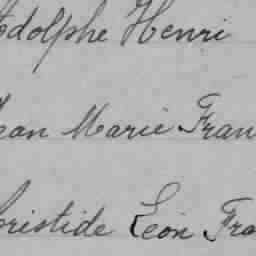 Adolphe Henri
Jean Marie Fran
Aristide Léon Fra